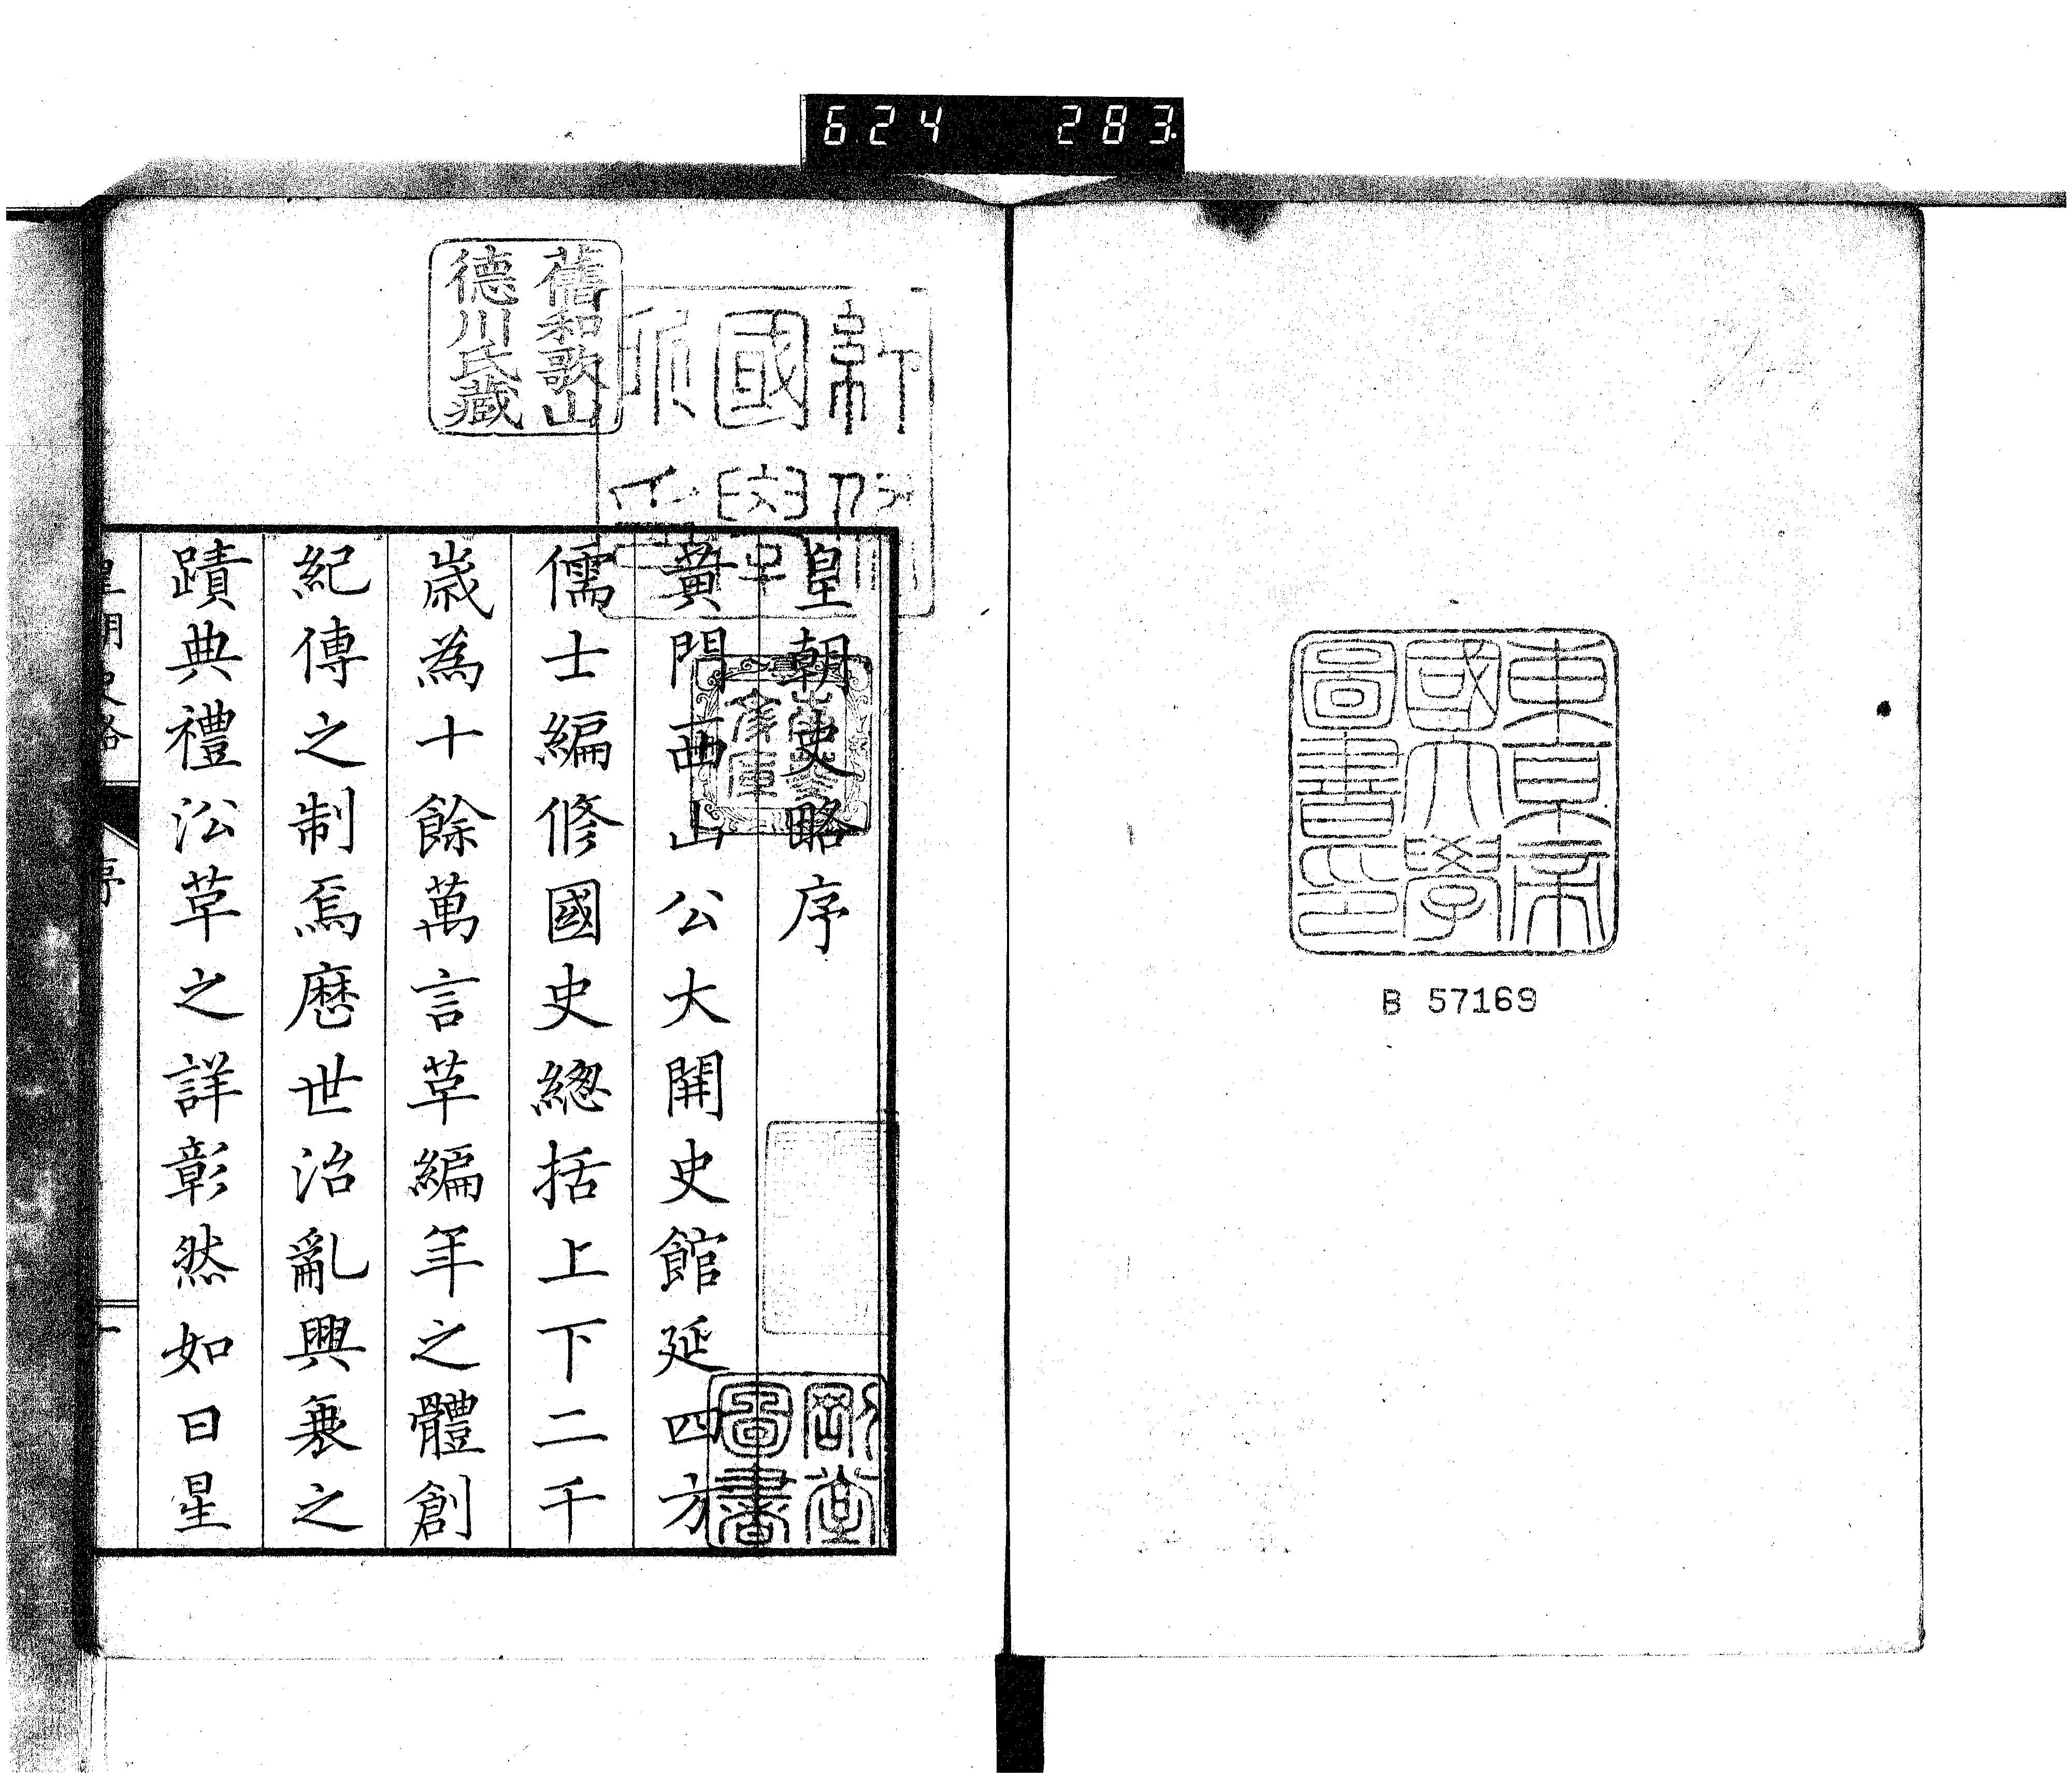 624 283
東京帝
國大學
圖書印
B 57169
舊和歌山
德川氏藏
皇朝史略序
黄門西山公大開史館延四方
儒士編修國史總括上下二千
歳為十餘萬言草編年之體創
紀傳之制焉厯世治亂興衰之
蹟典禮㳂草之詳彰然如日星
剛堂
圖書